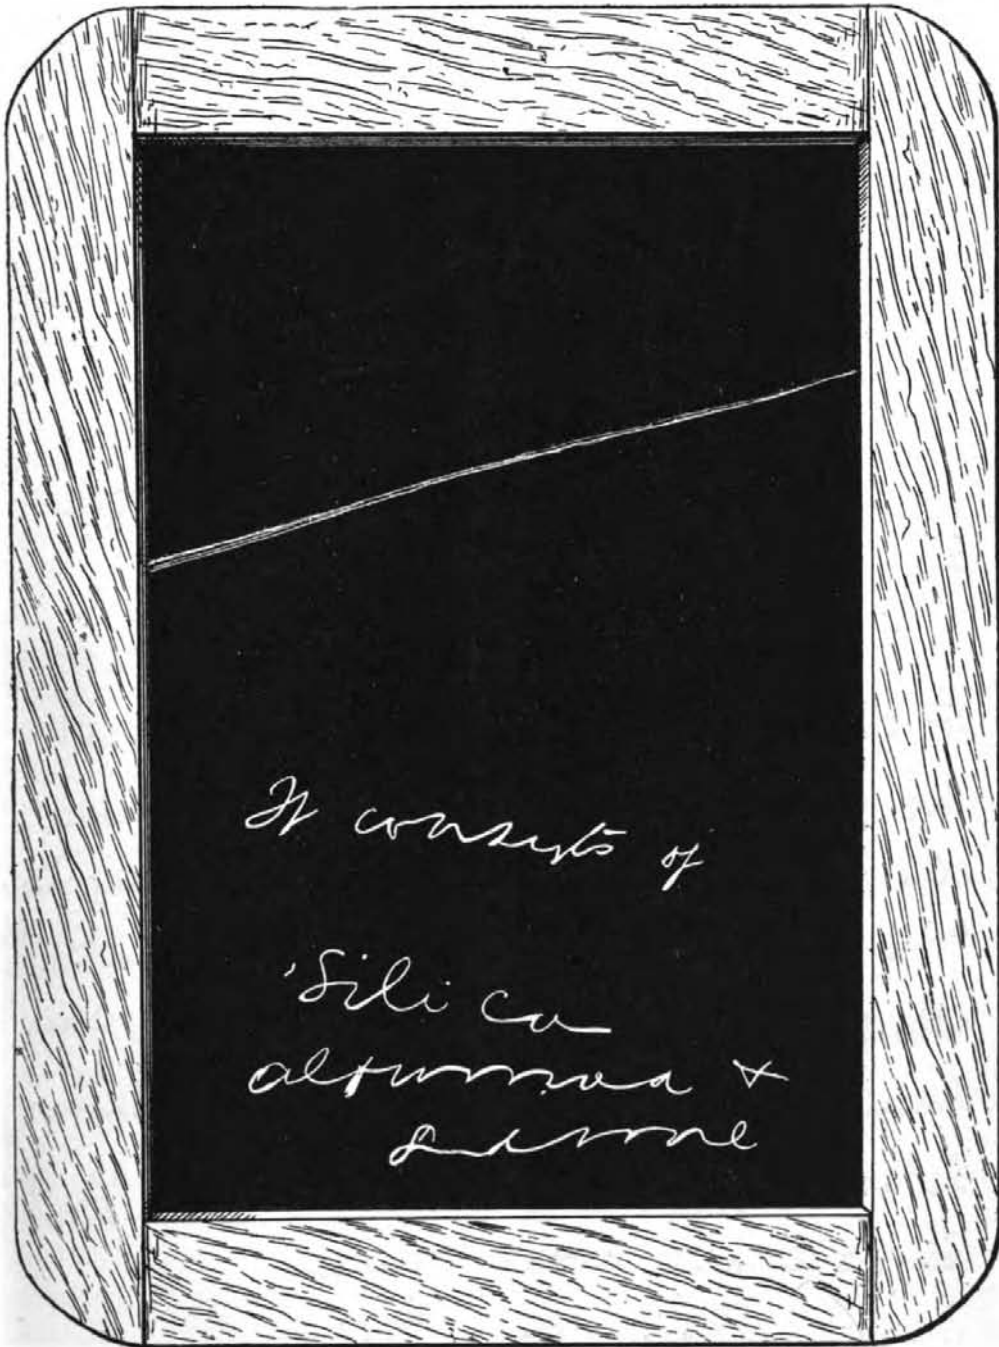 It consists of
Silica
alumina &
Lime